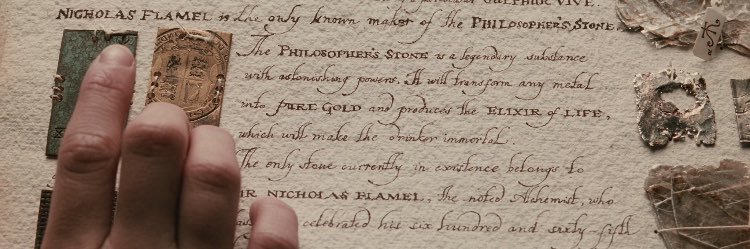 SULPHUR VIVE.
NICHOLAS FLAMEL is the only known maker of the PHILOSOPHER'S STONE.
The PHILOSOPHER'S STONE is a legendary substance
with astonishing powers. It will transform any metal
into PURE GOLD and produces the ELIXIR of LIFE,
which will make the drinker immortal.
The only stone currently in existence belongs to
NICHOLAS FLAMEL, the noted Alchemist, who
celebrated his six hundred and sixty-fifth